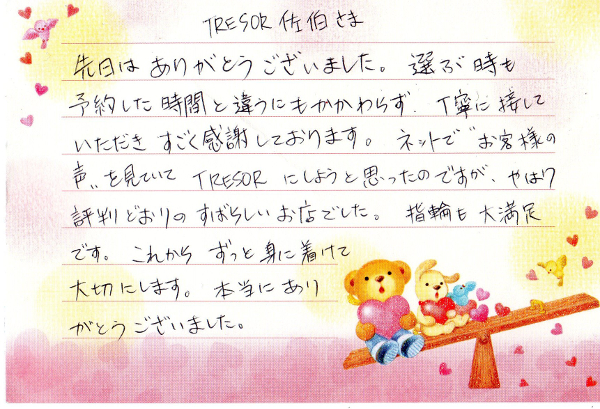 TRESOR 佐伯さま
先日は ありがとうございました。 選ぶ時も
予約した時間と違うにもかかわらず 丁寧に接して
いただき すごく感謝しております。 ネットで"お客様の
声"を見ていて TRESOR にしようと思ったのですが、やはり
評判どおりの すばらしいお店でした。 指輪も 大満足
です。 これから ずっと身に着けて
大切にします。 本当にあり
がとうございました。